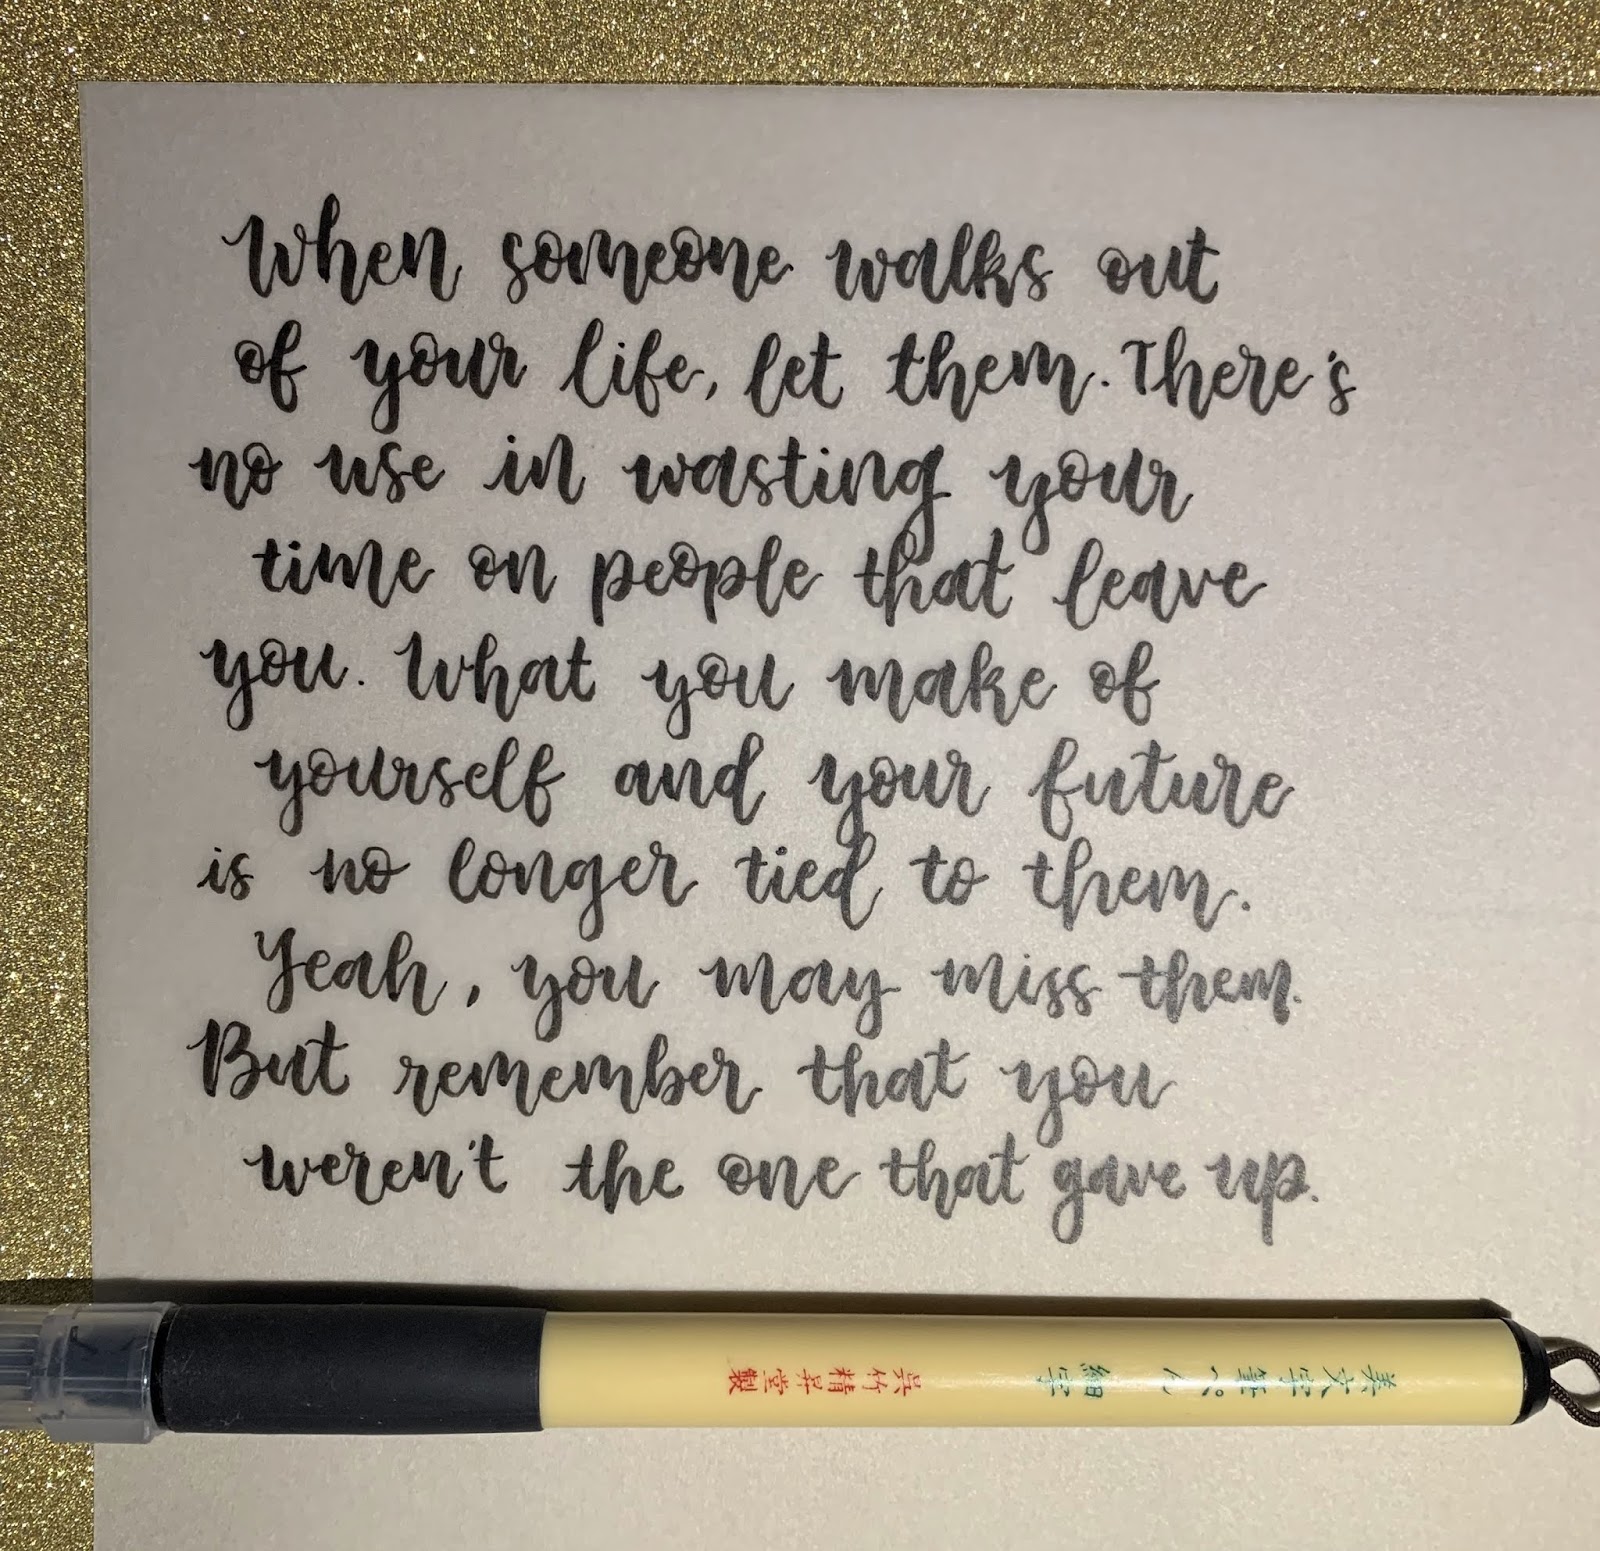 When someone walks out
of your life, let them. There's
no use in wasting your
time on people that leave
you. What you make of
yourself and your future
is no longer tied to them.
Yeah, you may miss them.
But remember that you
weren't the one that gave up.
美文字筆ぺん 細字 呉竹精昇堂製